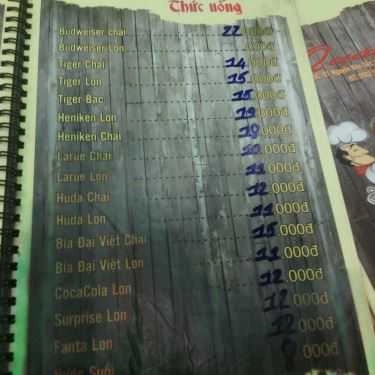 Thức uống
Budweiser chai 22.000đ
Budweiser Lon .000đ
Tiger Chai 14.000đ
Tiger Lon 15.000đ
Tiger Bạc .000đ
Heniken Lon 19.000đ
Heniken Chai 19.000đ
Larue Chai .000đ
Larue Lon 11.000đ
Huda Chai 12.000đ
Huda Lon 11.000đ
Bia Đại Việt Chai 15.000đ
Bia Đại Việt Lon 11.000đ
CocaCola Lon 12.000đ
Surprise Lon 12.000đ
Fanta Lon 12.000đ
Nước Suối .000đ